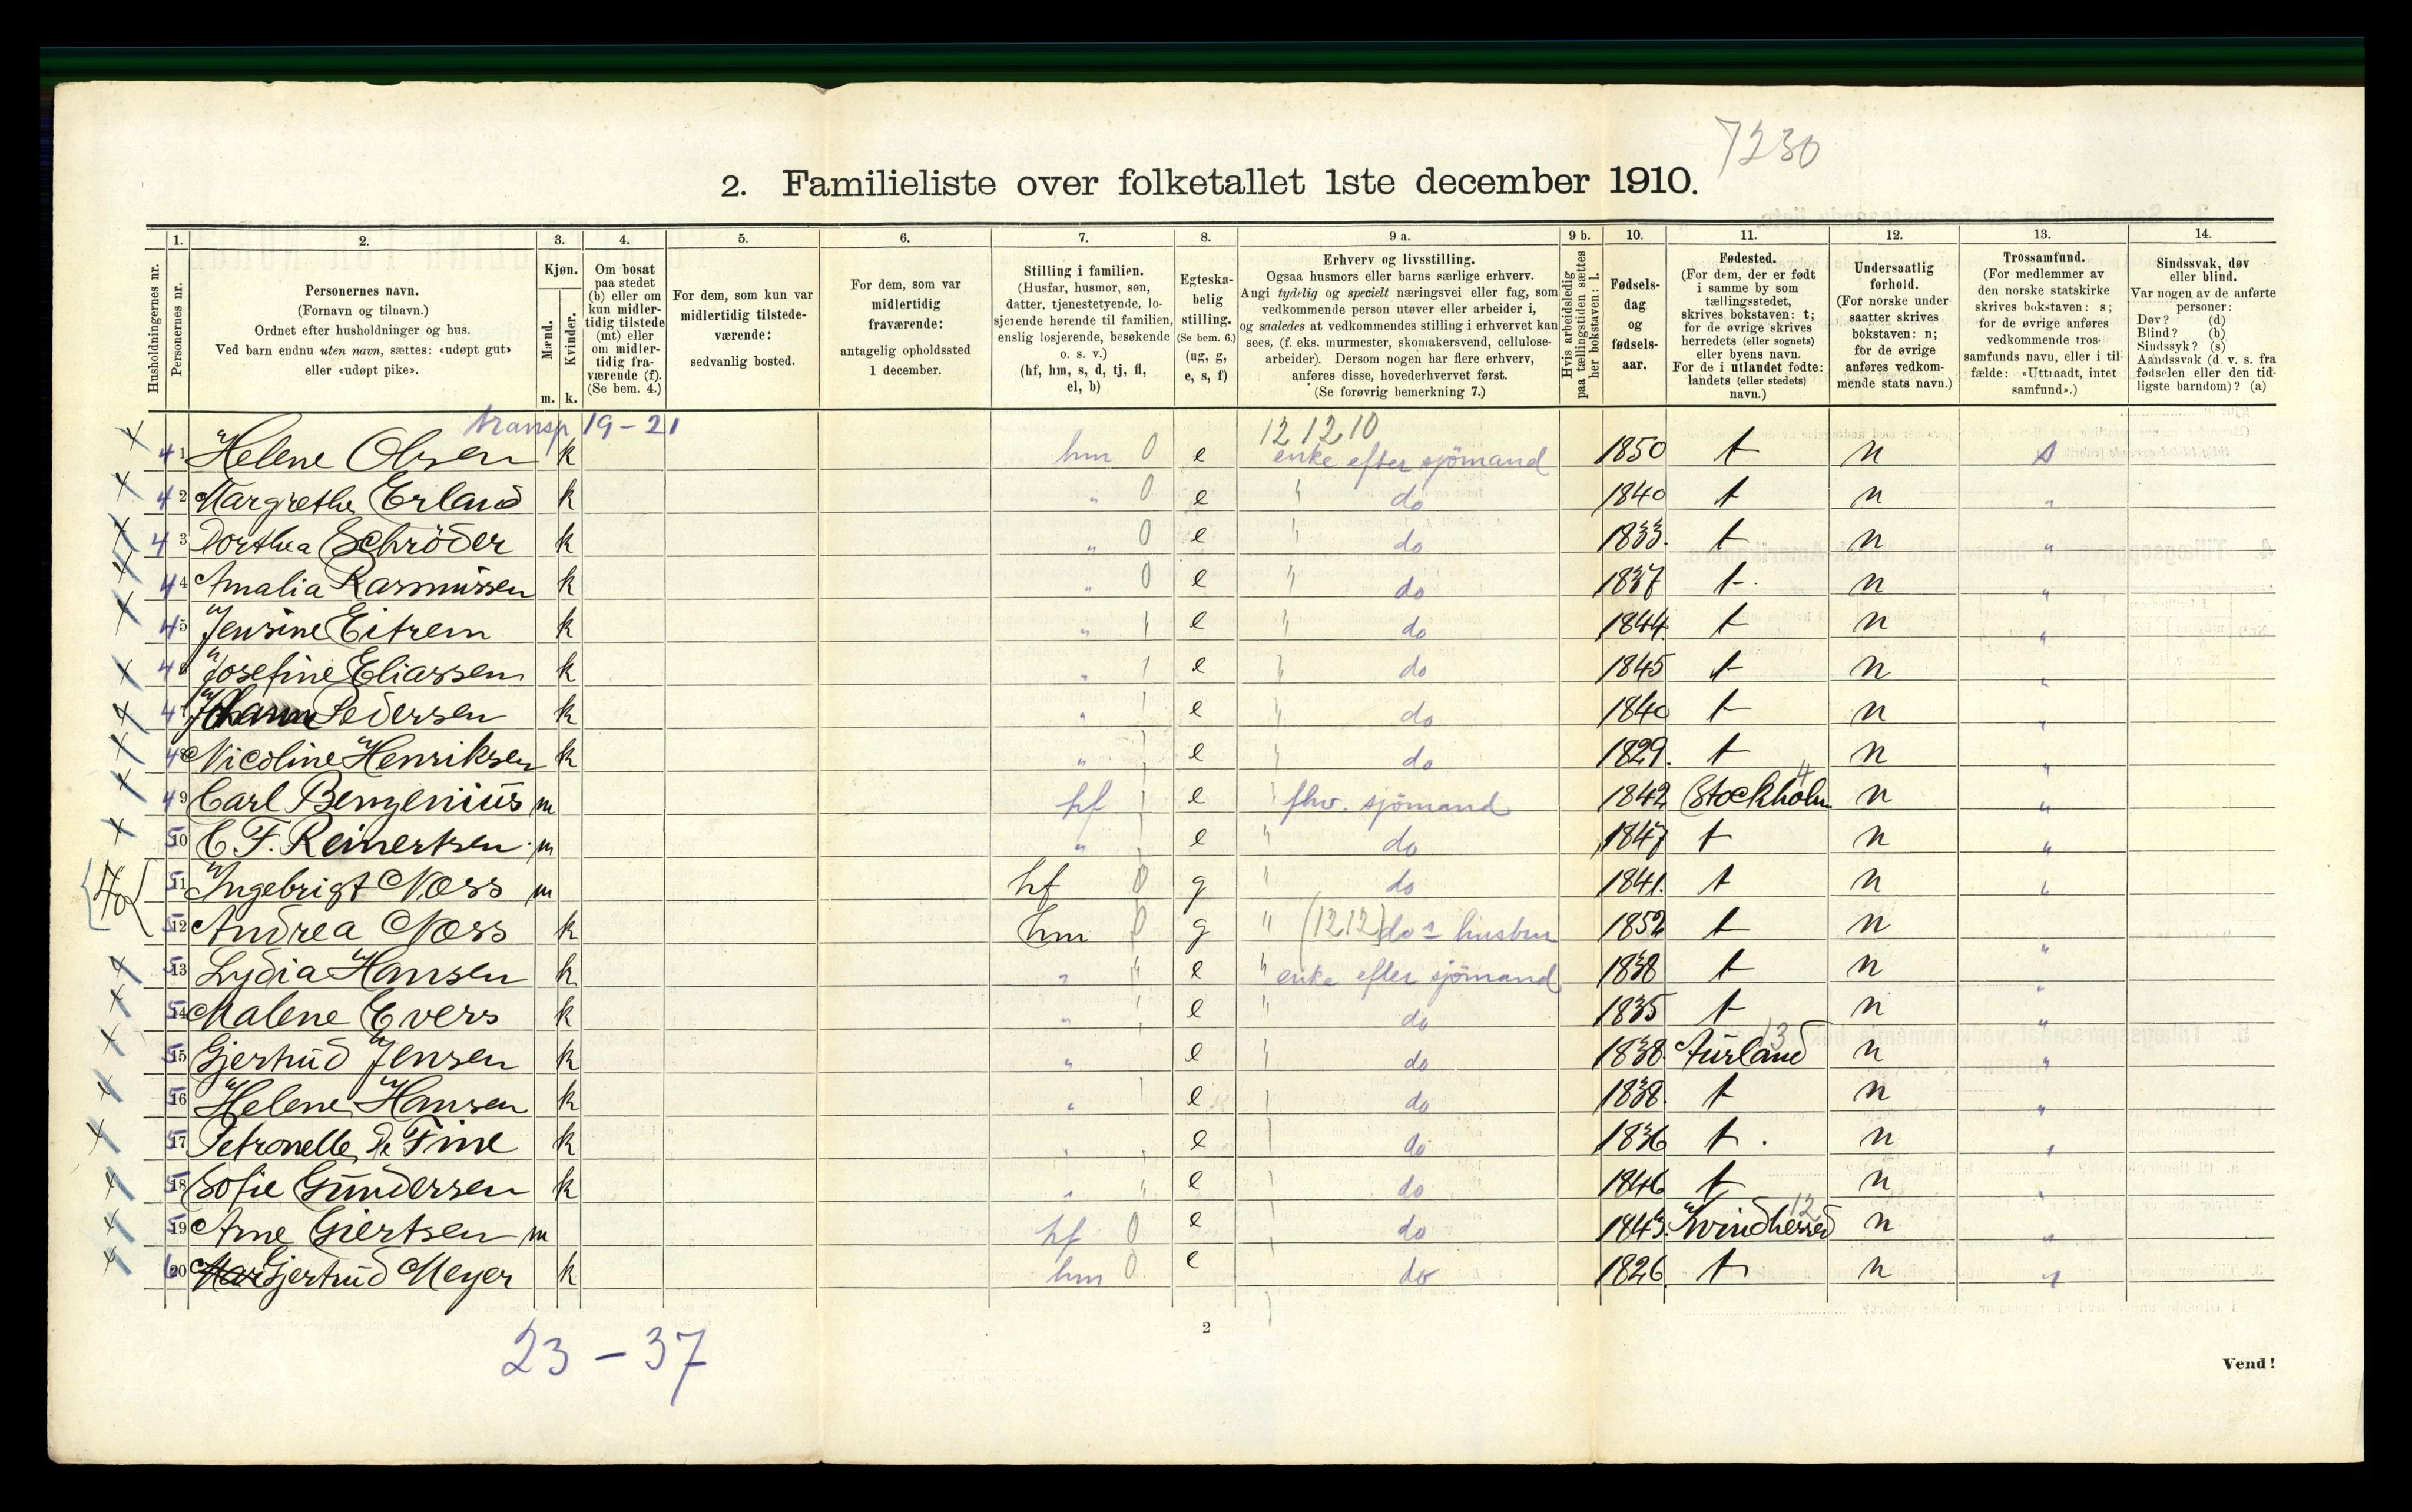 7230
2. Familieliste over folketallet 1ste december 1910.
1. 2. 3. 4. 5. 6. 7. 8. 9 a. 9 b. 10. 11. 12. 13. 14.
Husholdningernes nr.
Personernes nr.
Personernes navn.
(Fornavn og tilnavn.)
Ordnet efter husholdninger og hus.
Ved barn endnu uten navn, sættes: «udøpt gut»
eller «udøpt pike».
Kjøn.
Mænd.
Kvinder.
m. k.
Om bosat
paa stedet
(b) eller om
kun midler-
tidig tilstede
(mt) eller
om midler-
tidig fra-
værende (f).
(Se bem. 4.)
For dem, som kun var
midlertidig tilstede-
værende:
sedvanlig bosted.
For dem, som var
midlertidig
fraværende:
antagelig opholdssted
1 december.
Stilling i familien.
(Husfar, husmor, søn,
datter, tjenestetyende, lo-
sjerende hørende til familien,
enslig losjerende, besøkende
o. s. v.)
(hf, hm, s, d, tj, fl,
el, b)
Egteska-
belig
stilling.
(Se bem. 6.)
(ug, g,
e, s, f)
Erhverv og livsstilling.
Ogsaa husmors eller barns særlige erhverv.
Angi tydelig og specielt næringsvei eller fag, som
vedkommende person utøver eller arbeider i,
og saaledes at vedkommendes stilling i erhvervet kan
sees, (f. eks. murmester, skomakersvend, cellulose-
arbeider). Dersom nogen har flere erhverv,
anføres disse, hovederhvervet først.
(Se forøvrig bemerkning 7.)
Hvis arbeidsledig
paa tællingstiden sættes
her bokstaven: l.
Fødsels-
dag
og
fødsels-
aar.
Fødested.
(For dem, der er født
i samme by som
tællingsstedet,
skrives bokstaven: t;
for de øvrige skrives
herredets (eller sognets)
eller byens navn.
For de i utlandet fødte:
landets (eller stedets)
navn.)
Undersaatlig
forhold.
(For norske under-
saatter skrives
bokstaven: n;
for de øvrige
anføres vedkom-
mende stats navn.)
Trossamfund.
(For medlemmer av
den norske statskirke
skrives bokstaven: s;
for de øvrige anføres
vedkommende tros-
samfunds navn, eller i til-
fælde: «Uttraadt, intet
samfund».)
Sindssvak, døv
eller blind.
Var nogen av de anførte
personer:
Døv? (d)
Blind? (b)
Sindssyk? (s)
Aandssvak (d. v. s. fra
fødselen eller den tid-
ligste barndom)? (a)
transp 19-21 12 12 10
41 Helene Olsen k hm 0 e enke efter sjömand 1850 t n s
42 Margrethe Erland k " 0 e " do 1840 t n "
43 Dorthea Schröder k " 0 e " do 1833. t n "
44 Amalia Rasmussen k " 0 e " do 1837 t. n "
45 Jensine Eitrem k " " e " do 1844 t n "
46 Josefine Eliassen k " " e " do 1845 t n "
47 Pedersen k " " e " do 1840 t n "
48 Nicoline Henriksen k " " e " do 1829. t n "
4
49 Carl Benzenius m hf " e " fhv. sjömand 1842 Stockholm n "
50 C F. Reinertsen m " " e " do 1847 t n "
51 Ingebrigt Noss m hf 0 g " do 1841. t n "
52 Andrea Noss k hm 0 g " (1212) dos hustru 1852 t n "
53 Lydia Hansen k " " e " enke efter sjömand 1838 t n "
54 Malene Evers k " " e " do 1835 t n "
13
55 Gjertrud Jensen k " e " do 1838. Aurland n "
56 Helene Hansen k " " e " do 1838. t n "
57 Petronelle De Fine k " " e " do 1836 t. n "
58 Sofie Gundersen k " " e " do 1846 t n "
12
59 Arne Giertsen m hf 0 e " do 1843. Kvindherred n "
60 Gjertrud Meyer k hm 0 e do 1826. t n "
23-37
2
Vend!